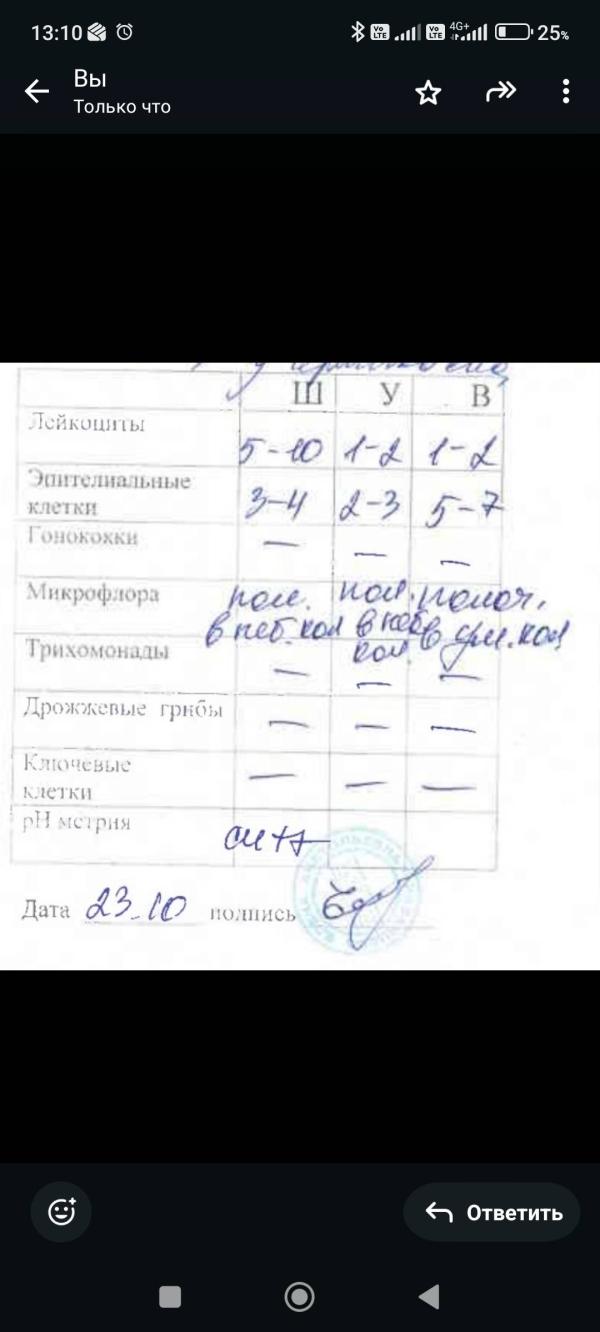 13:10 4G+ 25%
Вы
Только что
Ш У В
Лейкоциты 5-10 1-2 1-2
Эпителиальные
клетки 3-4 2-3 5-7
Гонококки — — —
Микрофлора пал. пал. палоч.
в неб. кол в неб в ум. кол
кол.
Трихомонады — — —
Дрожжевые грибы — — —
Ключевые
клетки — — —
pH метрия
Дата 23.10 подпись
Ответить